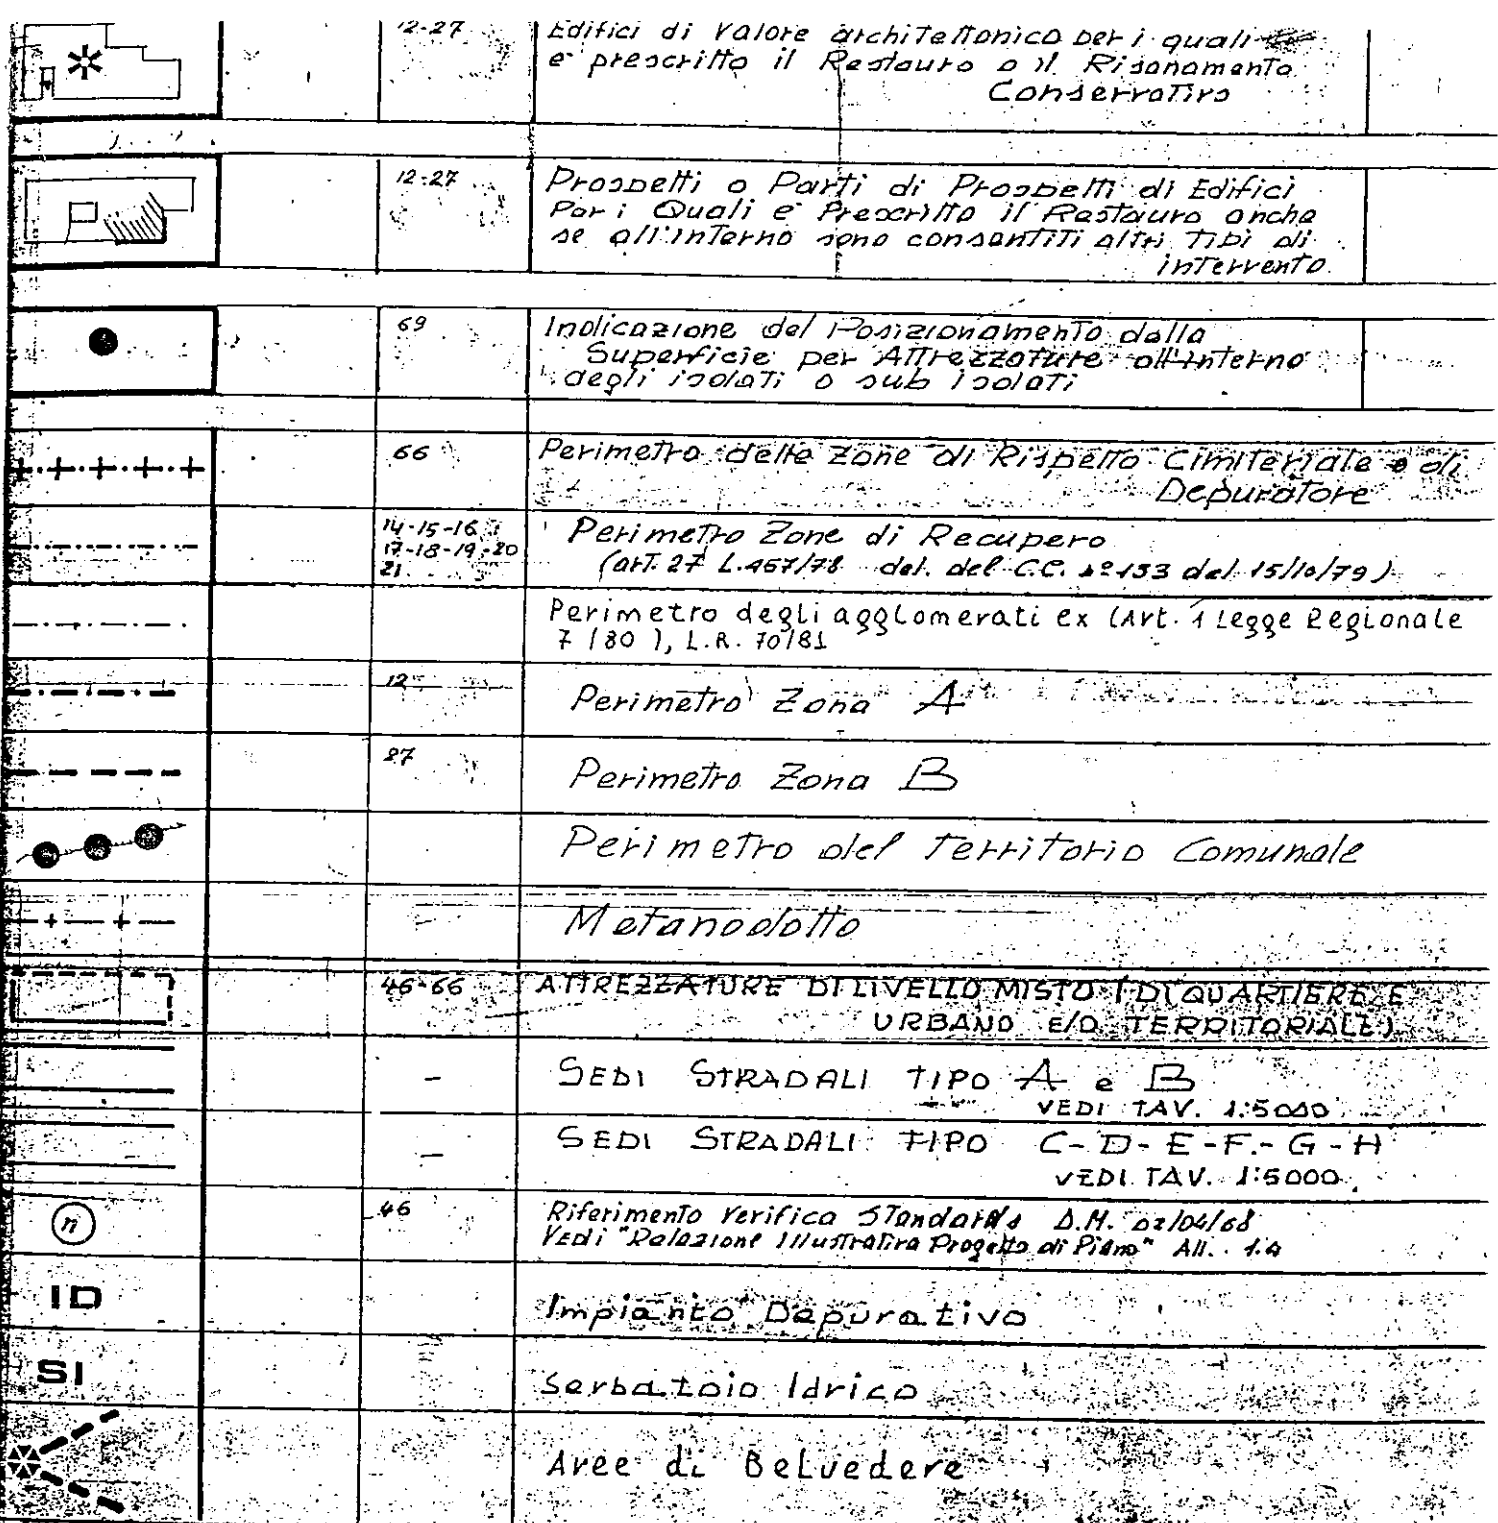 12-27
Edifici di Valore architettonico per i quali
e' prescritto il Restauro o il Risanamento
Conservativo
12-27
Prospetti o Parti di Prospetti di Edifici
Per i Quali e' Prescritto il Restauro anche
se all'interno sono consentiti altri Tipi di
intervento
69
Indicazione del Posizionamento della
Superficie per Attrezzature all'interno
degli isolati o sub isolati
66
Perimetro delle Zone di Rispetto Cimiteriale e di
Depuratore
14-15-16
17-18-19-20
21
Perimetro Zone di Recupero
(art. 27 L.457/78 del. del C.C. n° 153 del 15/10/79)
Perimetro degli agglomerati ex (Art. 1 Legge Regionale
7/80), L.R. 70/81
12
Perimetro Zona A
27
Perimetro Zona B
Perimetro del Territorio Comunale
Metanodotto
46-66
ATTREZZATURE DI LIVELLO MISTO (DI QUARTIERE E
URBANO E/O TERRITORIALE)
-
SEDI STRADALI TIPO A e B
VEDI TAV. 1:5000
-
SEDI STRADALI TIPO C-D-E-F-G-H
VEDI TAV. 1:5000
n
46
Riferimento Verifica Standards D.M. 02/04/68
Vedi "Relazione Illustrativa Progetto di Piano" All. 1.A
ID
Impianto Depurativo
SI
Serbatoio Idrico
Aree di Belvedere